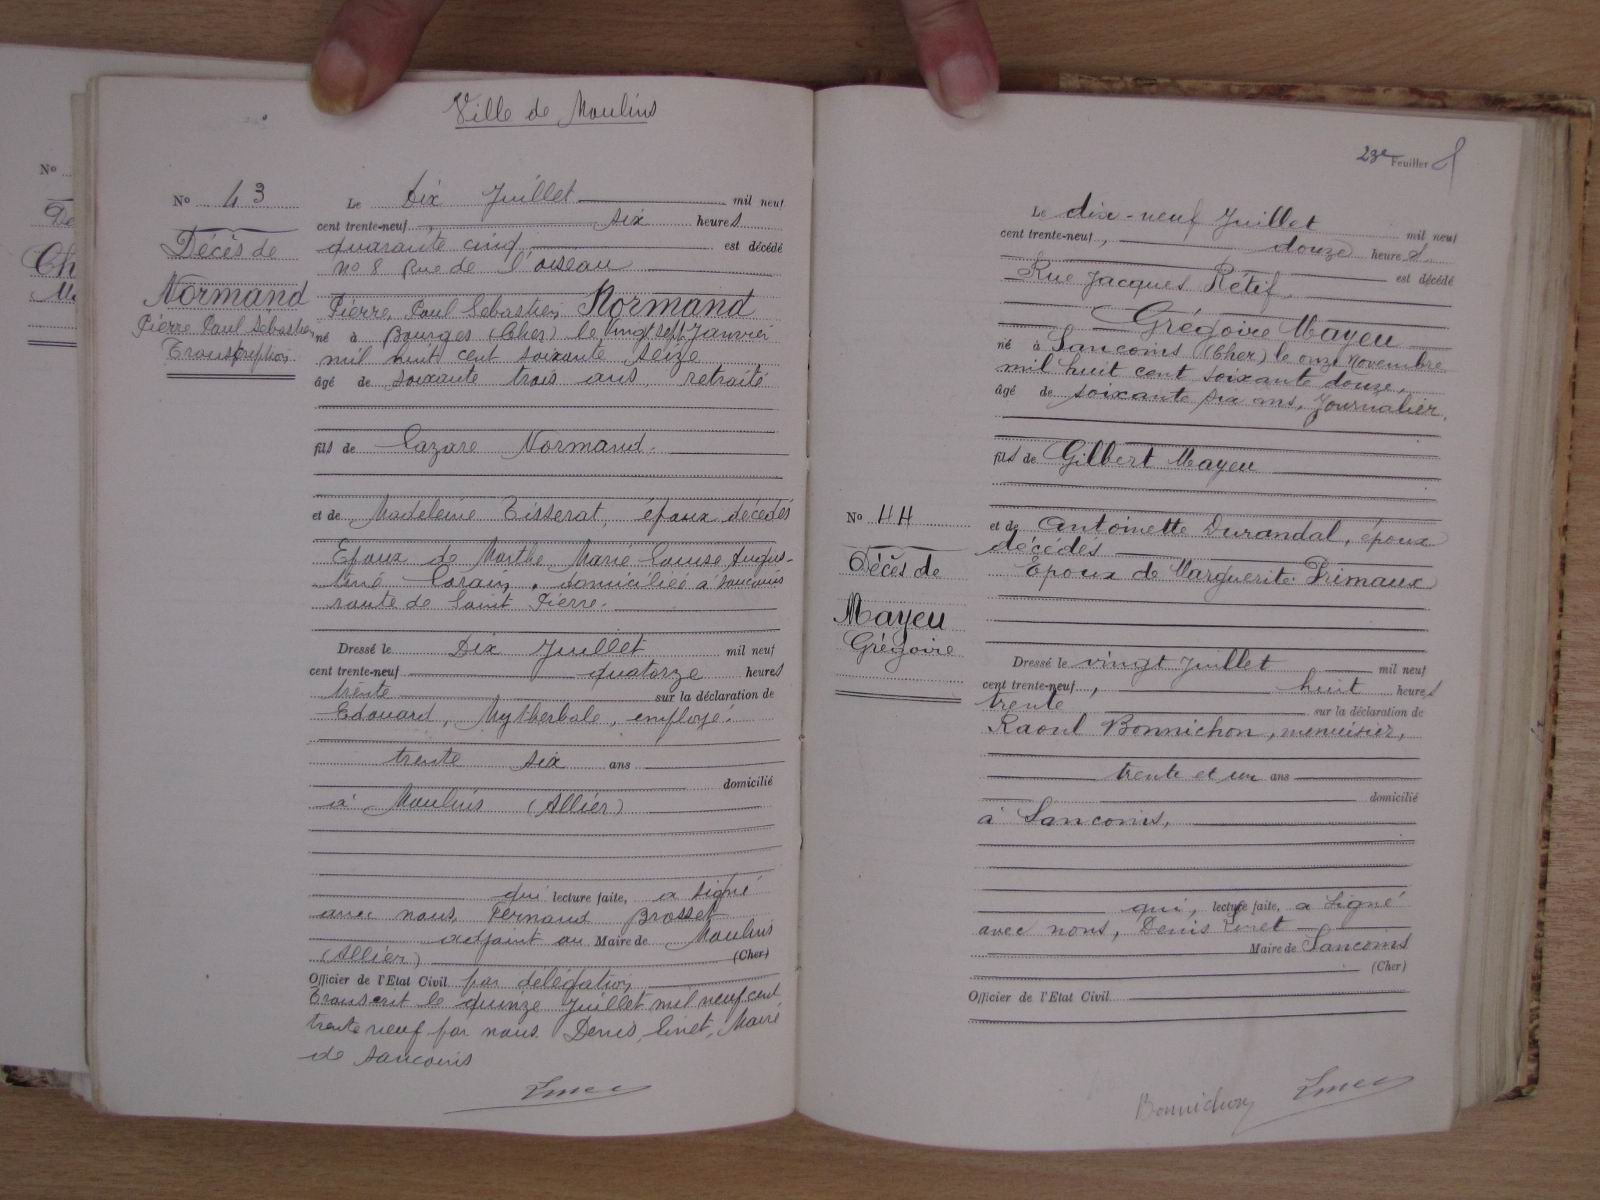 Ville de Moulins
Nº 43
Décès de
Normand
Pierre Paul Sebastien
Transcription
Le Dix Juillet mil neuf
cent trente-neuf, six heures
quarante cinq est décédé
Nº 8 Rue de l'oiseau
Pierre, Paul Sebastien Normand
né à Bourges (Cher) le vingt sept Janvier
mil huit cent soixante seize
âgé de soixante trois ans, retraité
fils de Lazare Normand.
et de Madeleine Tisserat, époux décédés
Epoux de Marthe Marie Louise Augus-
tine domiciliée à Sancoins
route de Saint Pierre.
Dressé le Dix Juillet mil neuf
cent trente-neuf quatorze heures
trente sur la déclaration de
Edouard, employé.
trente six ans
domicilié
à Moulins (Allier)
qui lecture faite, a signé
avec nous, Fernand Brosset
adjoint au Maire de Moulins
(Allier) (Cher)
Officier de l'Etat Civil par délégation
Transcrit le quinze Juillet mil neuf cent
trente neuf par nous Denis, Linet, Maire
de Sancoins
Nº
De
Ch
23e Feuillet
Nº 44
Décès de
Mayeu
Grégoire
Le dix-neuf Juillet mil neuf
cent trente-neuf, douze heures
est décédé
Rue Jacques Rétif
Grégoire Mayeu
né à Sancoins (Cher) le onze Novembre
mil huit cent soixante douze,
âgé de soixante six ans, Journalier,
fils de Gilbert Mayeu
et de Antoinette Durandal, époux
décédés
Epoux de Marguerite Primaux
Dressé le vingt Juillet mil neuf
cent trente-neuf, huit heures
trente sur la déclaration de
Raoul Bonnichon, menuisier,
trente et un ans
domicilié
à Sancoins,
qui, lecture faite, a signé
avec nous, Denis Linet
Maire de Sancoins
(Cher)
Officier de l'Etat Civil
Bonnichon